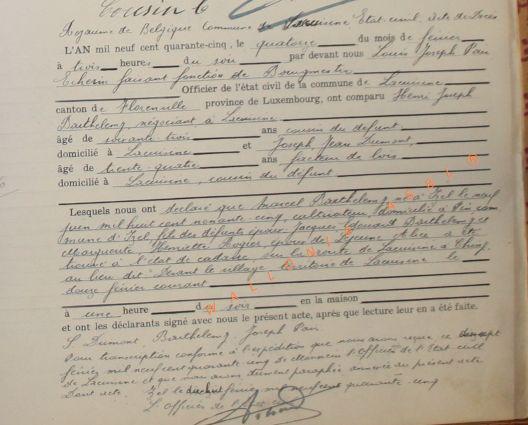 Cousin
Royaume de Belgique Commune de Lacuisine Etat-civil. Acte de Décès
L'AN mil neuf cent quarante-cinq, le quatorze du mois de février
à trois heures du soir par devant nous Louis Joseph Pair
Echevin faisant fonction de Bourgmestre
Officier de l'état civil de la commune de Lacuisine
canton de Florenville province de Luxembourg, ont comparu Henri Joseph
Barthelemy, négociant à Lacuisine
âgé de soixante trois ans cousin du défunt
domicilié à Lacuisine et Joseph, Jean Dumont,
âgé de trente-quatre ans facteur de bois
domicilié à Lacuisine, cousin du défunt
Lesquels nous ont déclaré que Marcel Barthelemy né à Izel le neuf
juin mil huit cent nonante-cinq, cultivateur, domicilié à Pin, com
mune d'Izel, fils des défunts époux Jacques Edouard Barthelemy et
Marguerite Henriette Rogier, époux de Lejeune Alice a été
trouvé à l'état de cadavre, sur la route de Lacuisine à Chiny,
au lieu dit "Devant le village" territoire de Lacuisine le
douze février courant
à une heure du soir en la maison
et ont les déclarants signé avec nous le présent acte, après que lecture leur en a été faite.
S. Dumont, Barthelemy, Joseph Pair
Pour transcription conforme à l'expédition que nous avons reçue, ce
février mil neuf cent quarante cinq de Monsieur l'Officier de l'Etat-civil
de Lacuisine et que nous avons dûment paraphée annexée au présent acte
Dont acte. Izel le février mil neuf cent quarante-cinq
L'Officier de l'Etat-civil